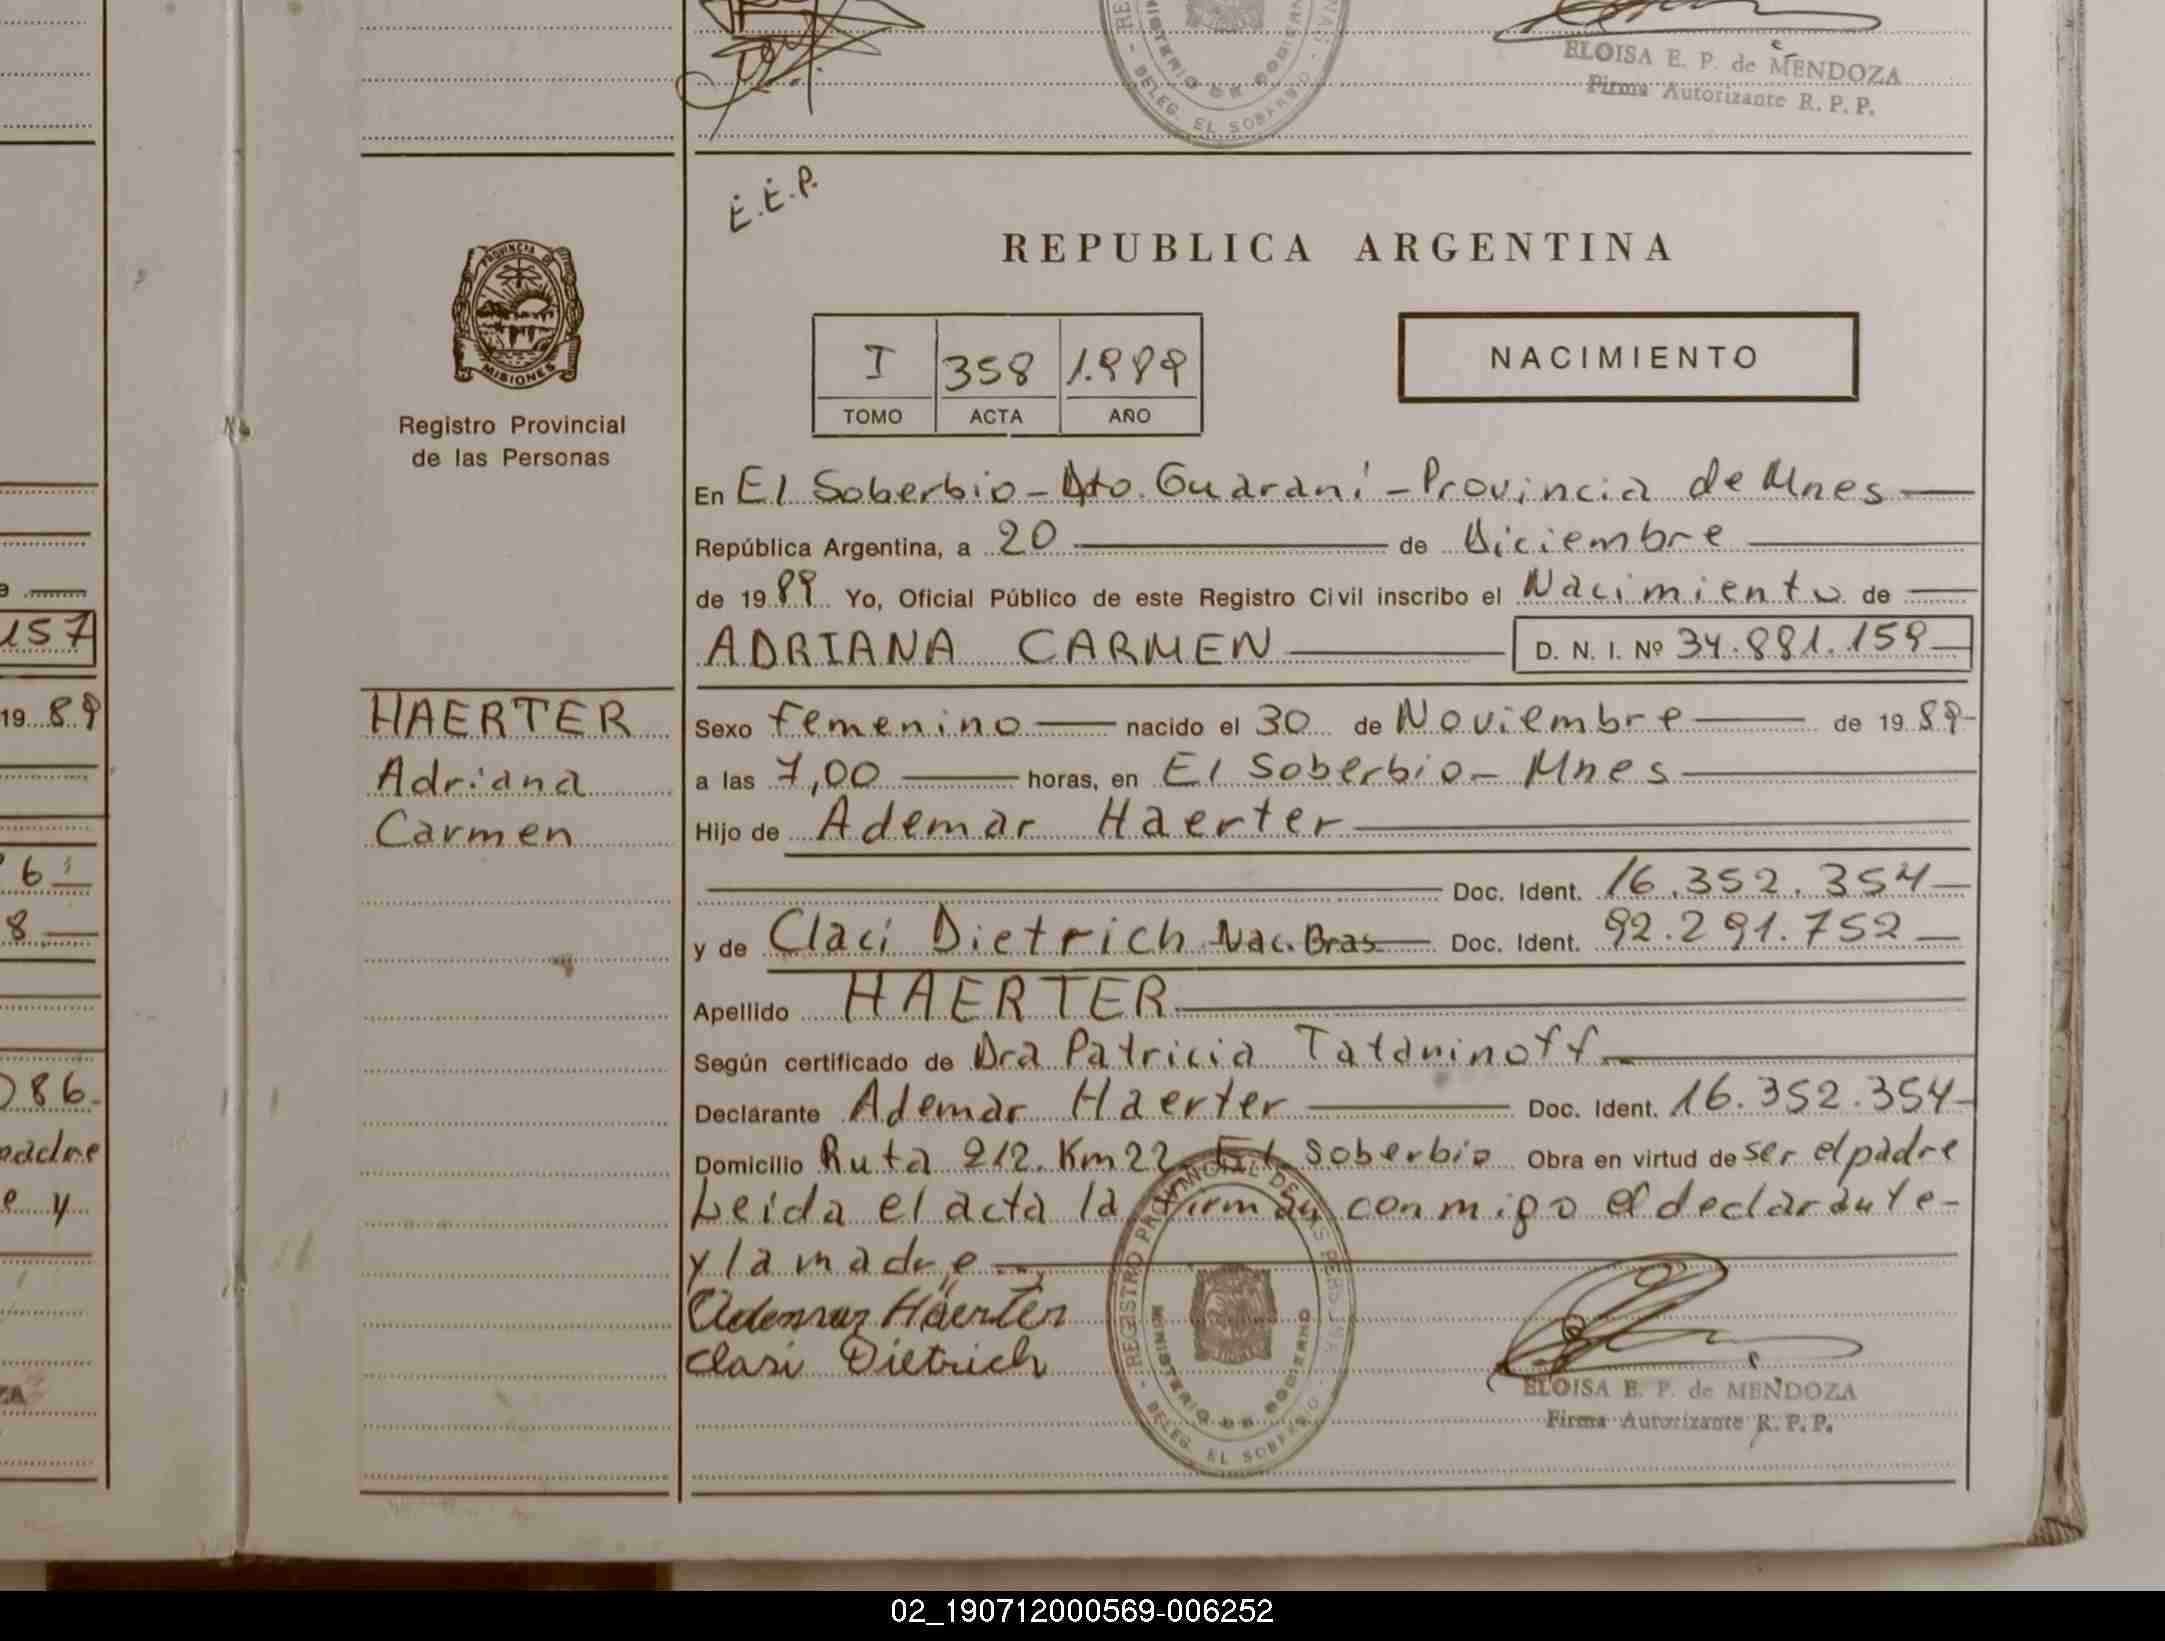 ELOISA E. P. de MENDOZA
Firma Autorizante R. P. P.
MINISTERIO DE GOBIERNO
DELEG. EL SOBERBIO
E.E.P.
REPUBLICA ARGENTINA
PROVINCIA DE
MISIONES
Registro Provincial
de las Personas
I 358 1.989
TOMO ACTA AÑO
NACIMIENTO
En El Soberbio - Dto. Guaraní - Provincia de Mnes
República Argentina, a 20 de Diciembre
de 1989 Yo, Oficial Público de este Registro Civil inscribo el Nacimiento de
ADRIANA CARMEN D. N. I. Nº 34.881.159
HAERTER
Adriana
Carmen
Sexo femenino nacido el 30 de Noviembre de 1989
a las 7,00 horas, en El Soberbio - Mnes
Hijo de Ademar Haerter
Doc. Ident. 16.352.354
y de Claci Dietrich Nac. Bras Doc. Ident. 92.291.752
Apellido HAERTER
Según certificado de Dra Patricia
Declarante Ademar Haerter Doc. Ident. 16.352.354
Domicilio Ruta 212. Km 22 El Soberbio Obra en virtud de ser el padre
Leida el acta la firman conmigo el declarante
y la madre
Ademar Haerter
Clasi Dietrich
REGISTRO PROVINCIAL DE LAS PERSONAS
MINISTERIO DE GOBIERNO
DELEG. EL SOBERBIO
ELOISA E. P. de MENDOZA
Firma Autorizante R. P. P.
157
19 89
6
8
86
padre
e y
02_190712000569-006252